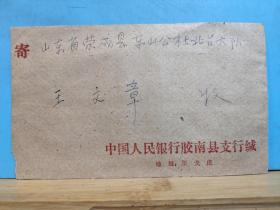 寄
山东省荣成县东山公社北台大队
王文章 收
中国人民银行胶南县支行缄
地址: